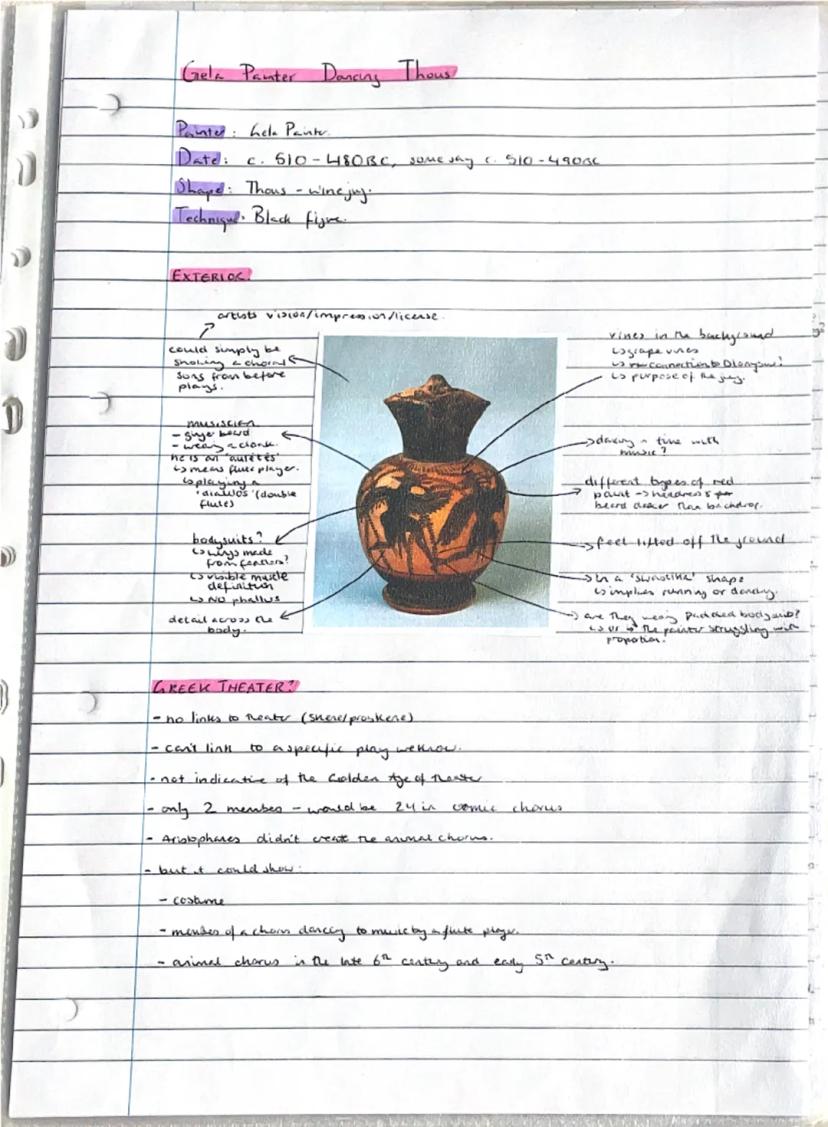 Gela Painter Dancing Thous
Painter: Gela Painter.
Date: c. 510-480BC, some say c. 510-490BC
Shape: Thous - wine jug.
Technique: Black figure.
EXTERIOR:
artists vision/impression/license.
could simply be
showing a choral
song from before
plays.
musiscian
- ginger beard
- wearing a cloak.
he is an 'auletes'
↳ means flute player.
↳ playing a
'diaulos' (double
flute)
bodysuits?
↳ wings made
from feathers?
↳ visible muscle
definition
↳ no phallus
detail across the
body.
vines in the background
↳ grape vines
↳ connection to Dionysus?
↳ purpose of the jug.
dancing in time with
music?
different types of red
paint → headdress
beard darker than backdrop.
feet lifted off the ground
in a 'swastika' shape
↳ implies running or dancing.
are they wearing padded bodysuits?
↳ or → the painter struggling with
proportion.
GREEK THEATER?
- no links to theater (skene/proskene)
- can't link to a specific play we know.
- not indicative of the Golden Age of theater
- only 2 members - would be 24 in comic chorus
- Aristophanes didn't create the animal chorus.
- but it could show:
- costume
- members of a chorus dancing to music by a flute player.
- animal chorus in the late 6th century and early 5th century.